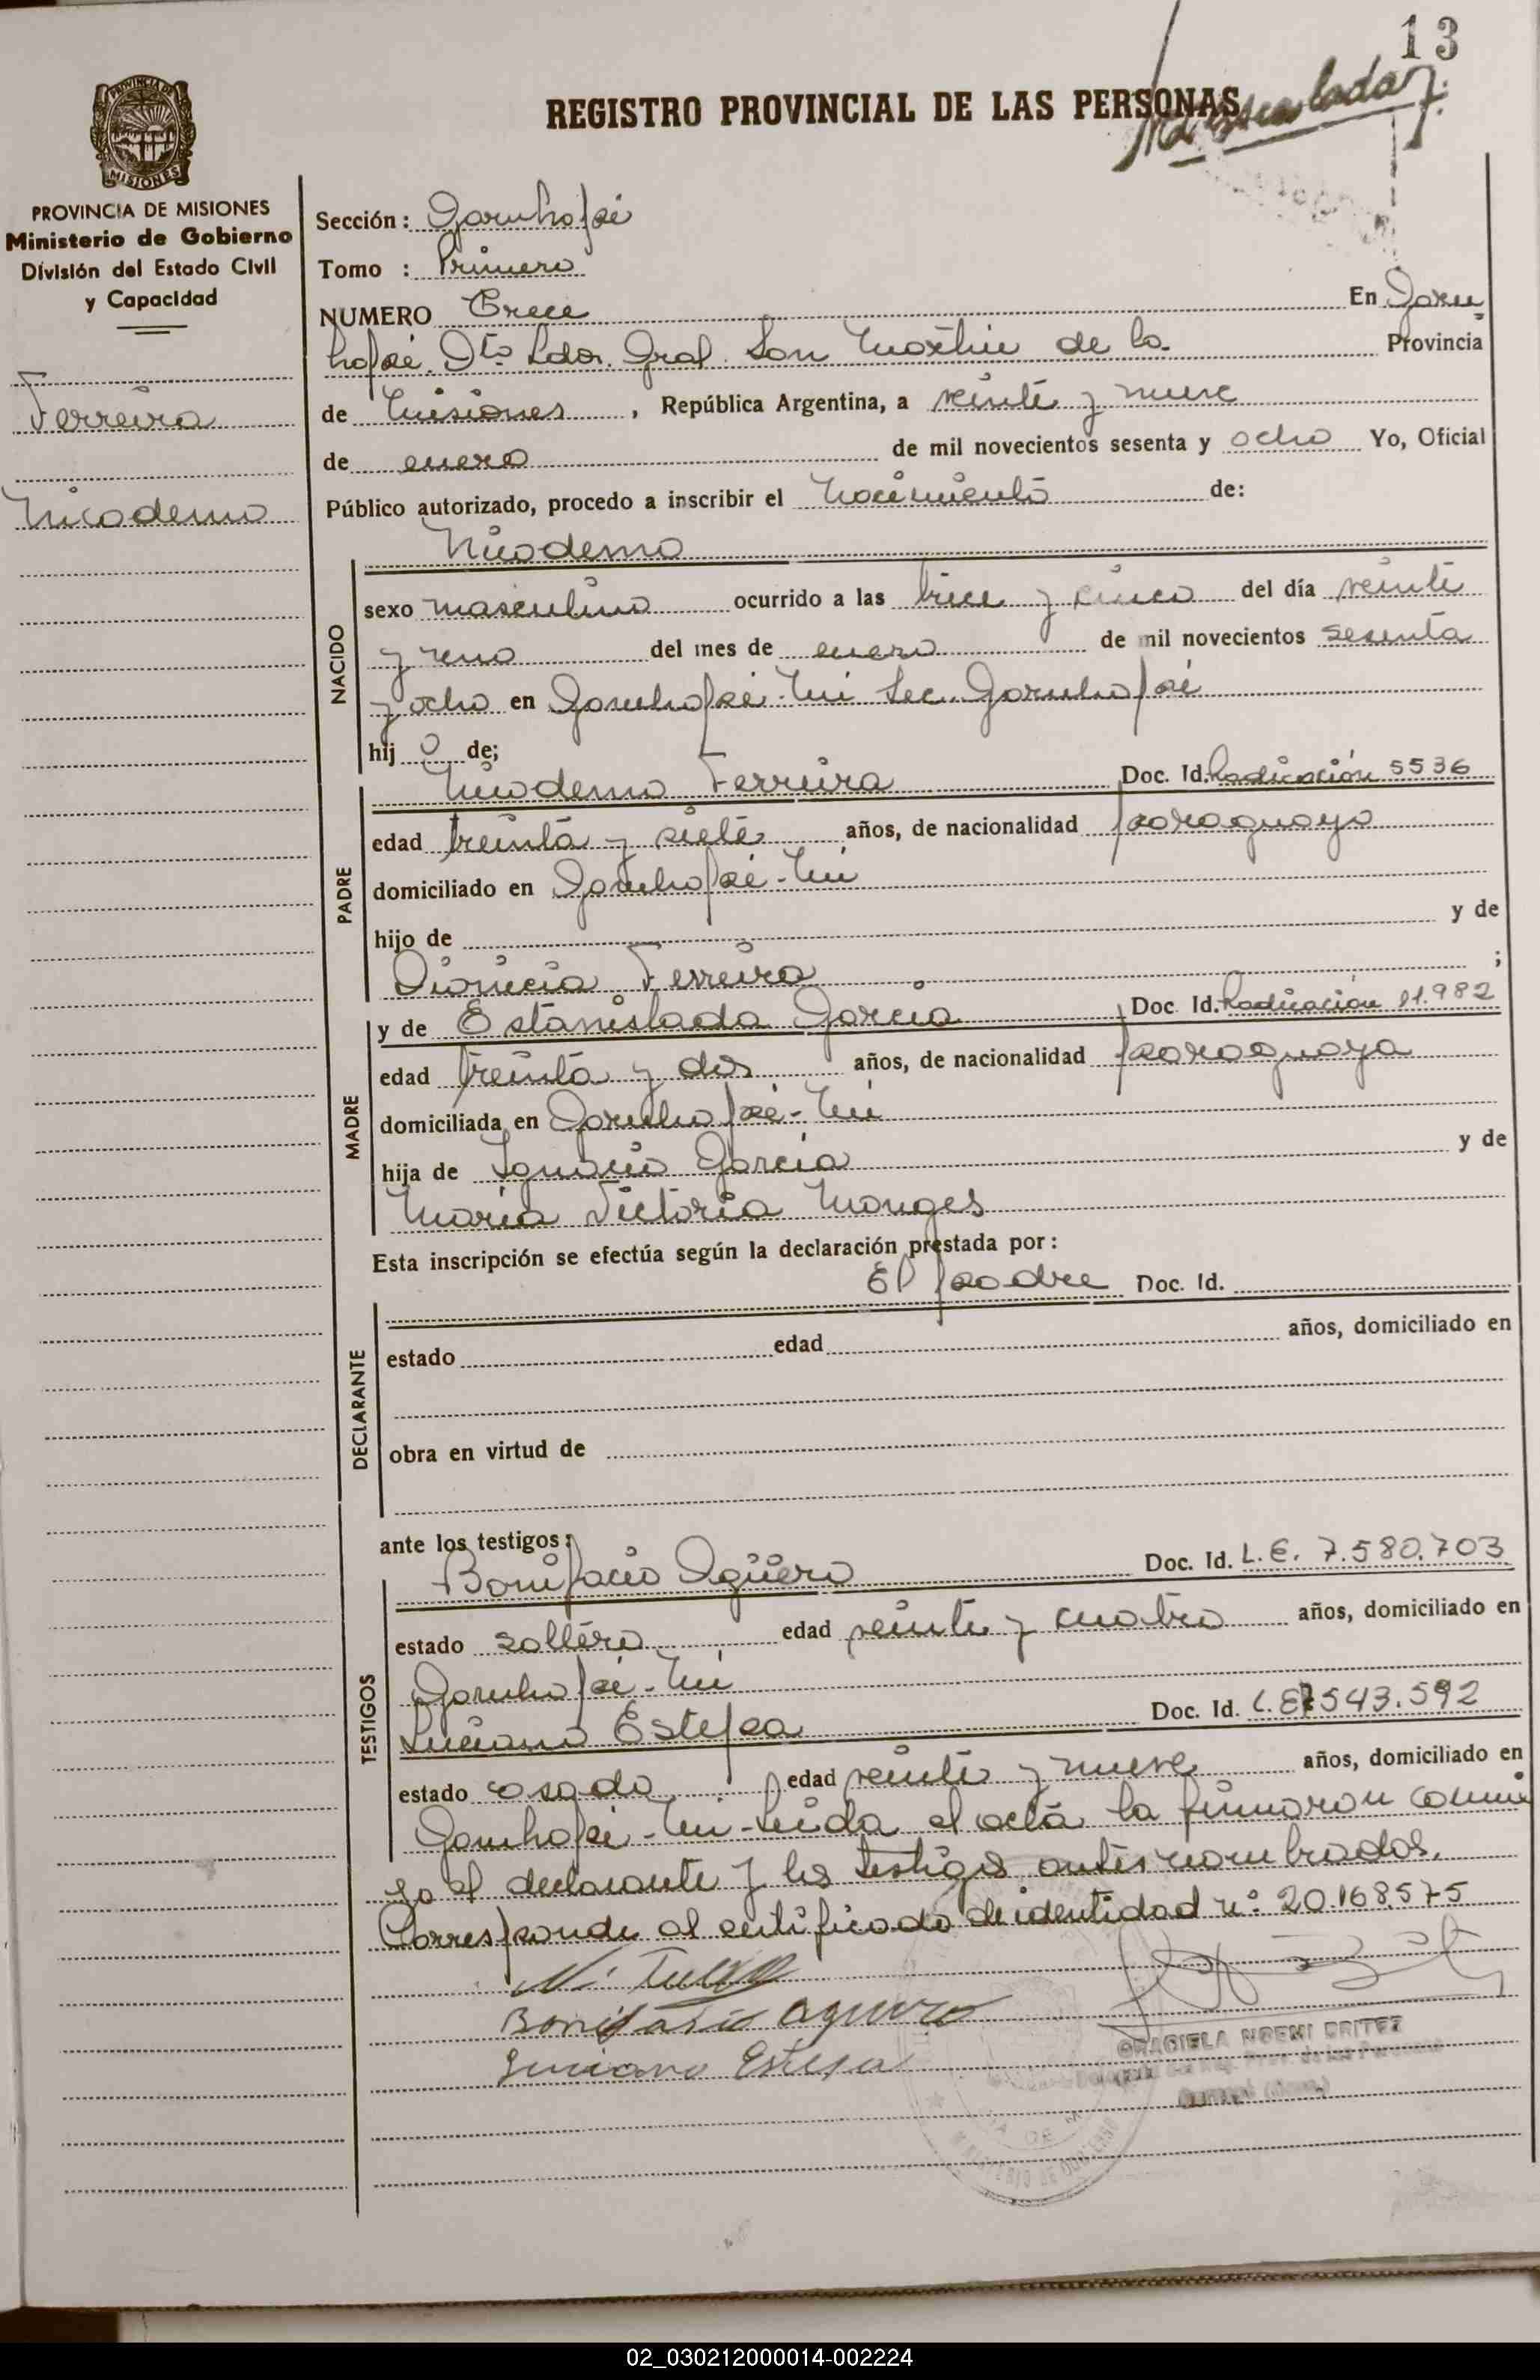 13
REGISTRO PROVINCIAL DE LAS PERSONAS
Matriculado
PROVINCIA DE MISIONES
Ministerio de Gobierno
División del Estado Civil
y Capacidad
Ferreira
Nicodemo
Sección: Garuhapé
Tomo : Primero
NUMERO Trece En Garu
hapé Dto Ldor. Gral. San Martin de la Provincia
de Misiones, República Argentina, a veinte y nueve
de enero de mil novecientos sesenta y ocho Yo, Oficial
Público autorizado, procedo a inscribir el Nacimiento de:
Nicodemo
NACIDO
sexo masculino ocurrido a las trece y cinco del día veinte
y uno del mes de enero de mil novecientos sesenta
y ocho en Garuhapé-Mi Sec. Garuhapé
hij o de;
Nicodemo Ferreira Doc. Id. Radicación 5536
PADRE
edad treinta y siete años, de nacionalidad paraguayo
domiciliado en Garuhapé-Mi
hijo de y de
Dionicia Ferreira ;
y de Estanislada Garcia Doc. Id. Radicación 11.982
MADRE
edad treinta y dos años, de nacionalidad paraguaya
domiciliada en Garuhapé-Mi
hija de Ignacio Garcia y de
Maria Victoria Monges
Esta inscripción se efectúa según la declaración prestada por:
El padre Doc. Id.
DECLARANTE
estado edad años, domiciliado en
obra en virtud de
ante los testigos:
Bonifacio Agüero Doc. Id. L.E. 7.580.703
TESTIGOS
estado soltero edad veinte y cuatro años, domiciliado en
Garuhapé-Mi
Luciano Estepa Doc. Id. L.E 7543.592
estado casado edad veinte y nueve años, domiciliado en
Garuhapé-Mi-Leida el acta la firmaron conmi
go el declarante y los testigos antes nombrados.
Corresponde al certificado de identidad nº 20.168.575
Bonifacio Aguero
Luciano Estepa
GRACIELA NOEMI BRITEZ
02_030212000014-002224